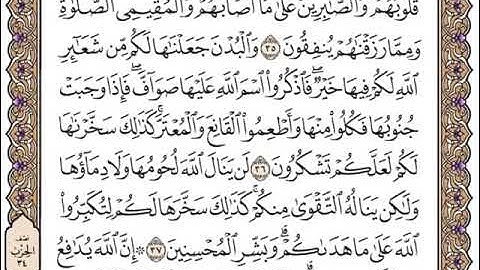 قُلُوبُهُمْ وَٱلصَّٰبِرِينَ عَلَىٰ مَآ أَصَابَهُمْ وَٱلْمُقِيمِى ٱلصَّلَوٰةِ
وَمِمَّا رَزَقْنَٰهُمْ يُنفِقُونَ ٣٥ وَٱلْبُدْنَ جَعَلْنَٰهَا لَكُم مِّن شَعَٰٓئِرِ
ٱللَّهِ لَكُمْ فِيهَا خَيْرٌ ۖ فَٱذْكُرُوا۟ ٱسْمَ ٱللَّهِ عَلَيْهَا صَوَآفَّ ۖ فَإِذَا وَجَبَتْ
جُنُوبُهَا فَكُلُوا۟ مِنْهَا وَأَطْعِمُوا۟ ٱلْقَانِعَ وَٱلْمُعْتَرَّ ۚ كَذَٰلِكَ سَخَّرْنَٰهَا
لَكُمْ لَعَلَّكُمْ تَشْكُرُونَ ٣٦ لَن يَنَالَ ٱللَّهَ لُحُومُهَا وَلَا دِمَآؤُهَا
وَلَٰكِن يَنَالُهُ ٱلتَّقْوَىٰ مِنكُمْ ۚ كَذَٰلِكَ سَخَّرَهَا لَكُمْ لِتُكَبِّرُوا۟
ٱللَّهَ عَلَىٰ مَا هَدَىٰكُمْ ۗ وَبَشِّرِ ٱلْمُحْسِنِينَ ٣٧ ۞ إِنَّ ٱللَّهَ يُدَٰفِعُ
نصف
الحزب
٣٤